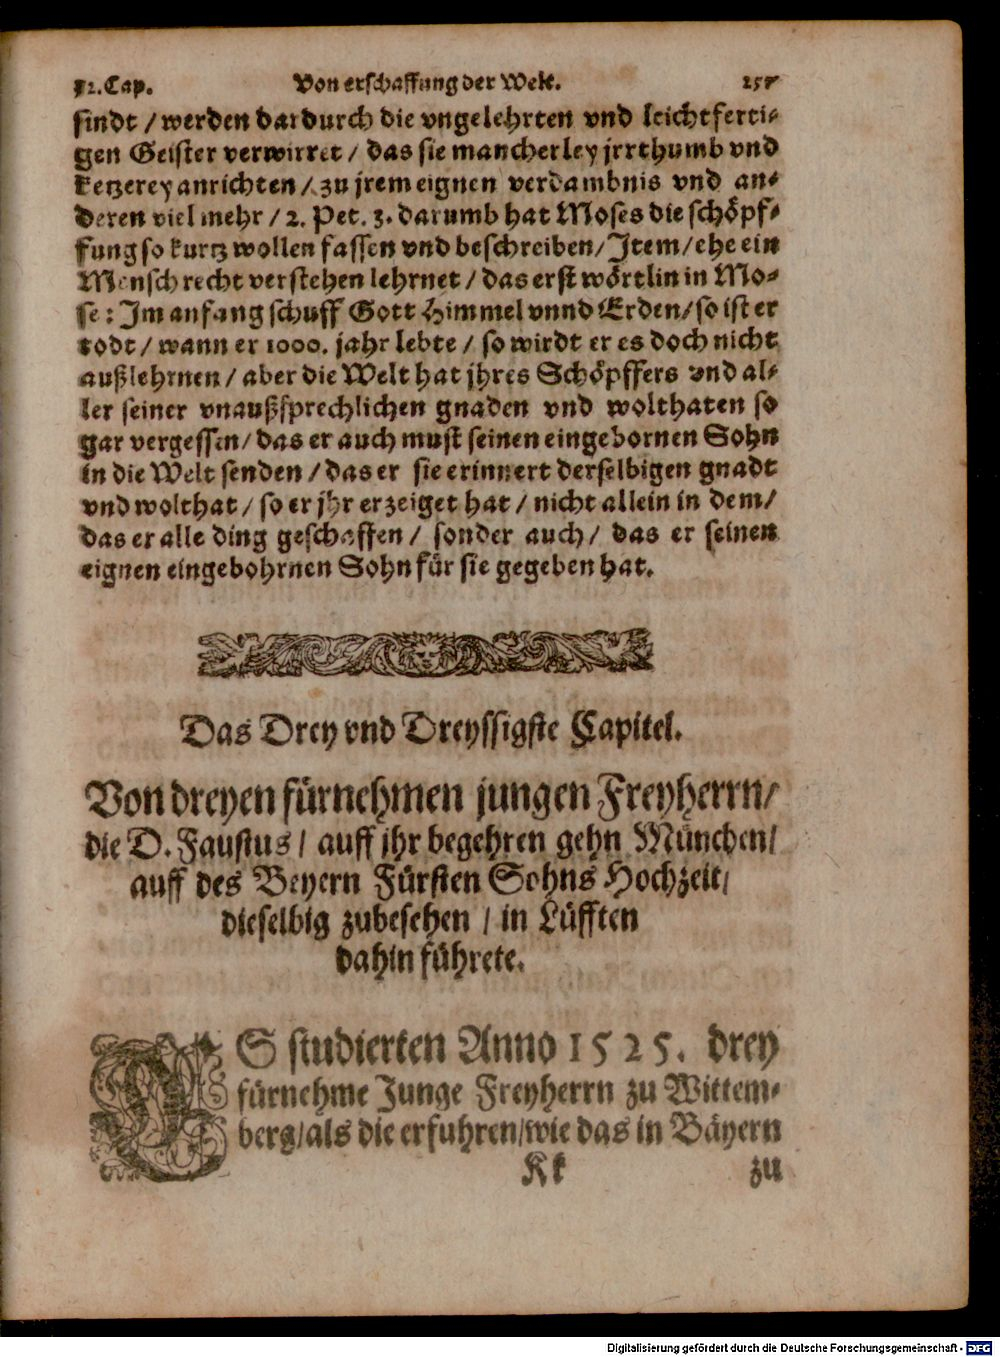 32. Cap. Von erschaffung der Welt. 257
sindt / werden dardurch die vngelehrten vnd leichtferti-
gen Geister verwirret / das sie mancherley jrrthumb vnd
ketzerey anrichten / zu jrem eignen verdambnis vnd an-
deren viel mehr / 2. Pet. 3. darumb hat Moses die schöpf-
fung so kurtz wollen fassen vnd beschreiben / Item / ehe ein
Mensch recht verstehen lehrnet / das erst wörtlin in Mo-
se : Im anfang schuff Gott Himmel vnnd Erden / so ist er
todt / wann er 1000. jahr lebte / so wirdt er es doch nicht
außlehrnen / aber die Welt hat jhres Schöpffers vnd al-
ler seiner vnaußsprechlichen gnaden vnd wolthaten so
gar vergessen / das er auch must seinen eingebornen Sohn
in die Welt senden / das er sie erinnert derselbigen gnadt
vnd wolthat / so er jhr erzeiget hat / nicht allein in dem /
das er alle ding geschaffen / sonder auch / das er seinen
eignen eingebohrnen Sohn für sie gegeben hat.
Das Drey vnd Dreyssigste Capitel.
Von dreyen fürnehmen jungen Freyherrn /
die D. Faustus / auff jhr begehren gehn München /
auff des Beyern Fürsten Sohns Hochzeit /
dieselbig zubesehen / in Lüfften
dahin führete.
ES studierten Anno 1525. drey
fürnehme Junge Freyherrn zu Wittem-
berg / als die erfuhren / wie das in Bäyern
Kk zu
Digitalisierung gefördert durch die Deutsche Forschungsgemeinschaft - DFG